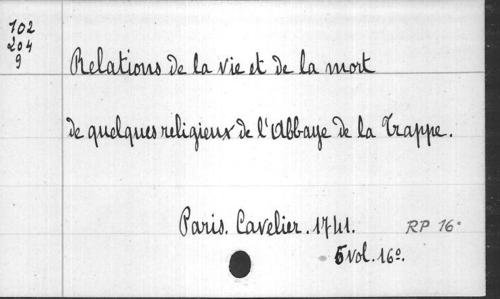 102
204
9
Relations de la vie et de la mort
de quelques religieux de l'Abbaye de la Trappe.
Paris. Cavelier. 1741. RP 16°
5 vol. 16º.